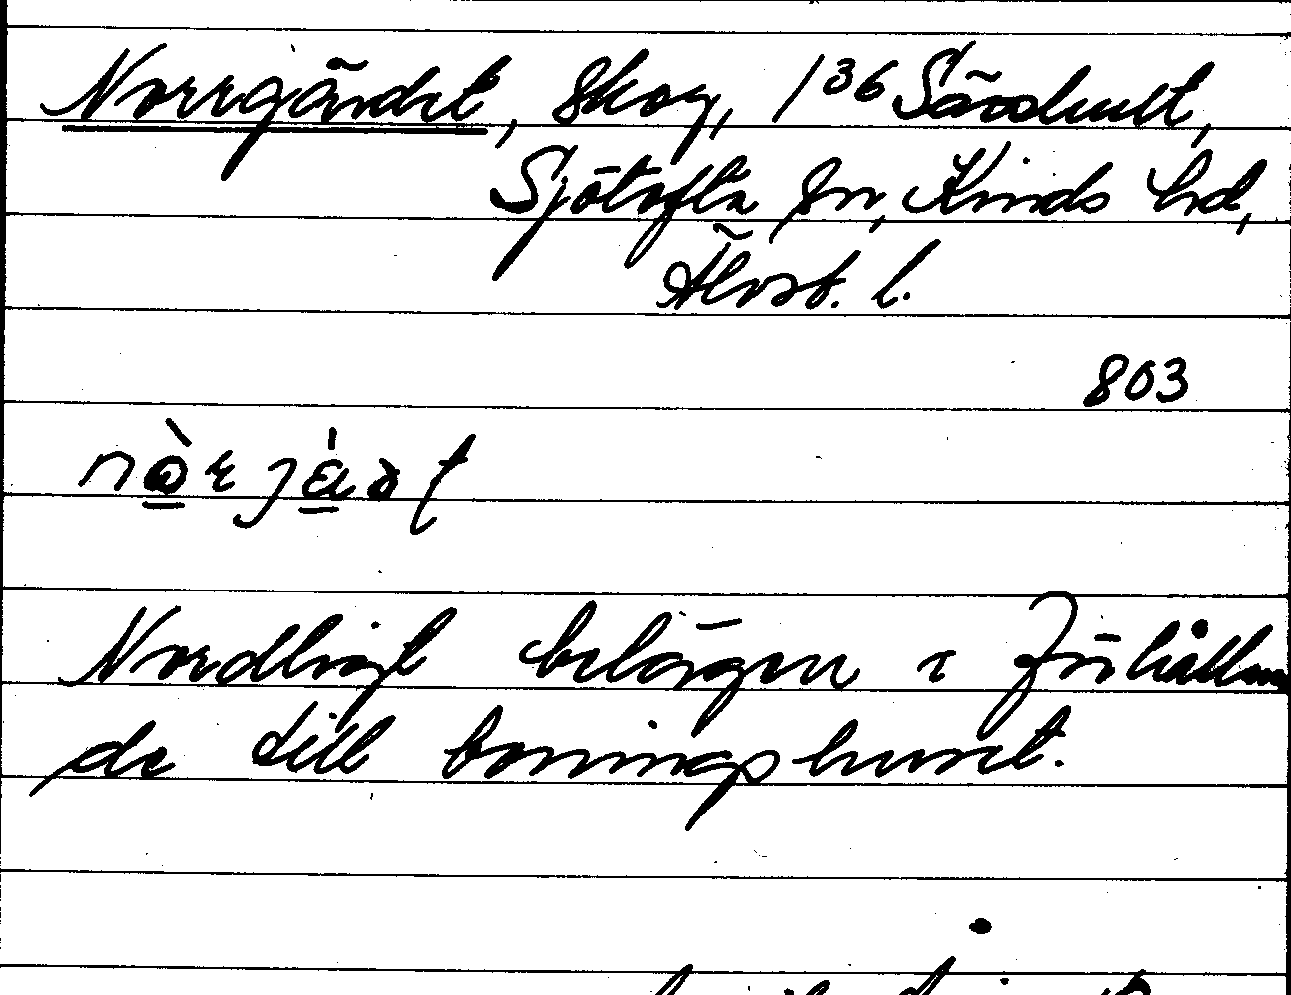 Norrgärdet, Skog, 1³⁶ Särdhult,
Sjötofta sn, Kinds hd,
Älvsb. l.
803
Nordligt belägen i förhållan
de till boningshuset.